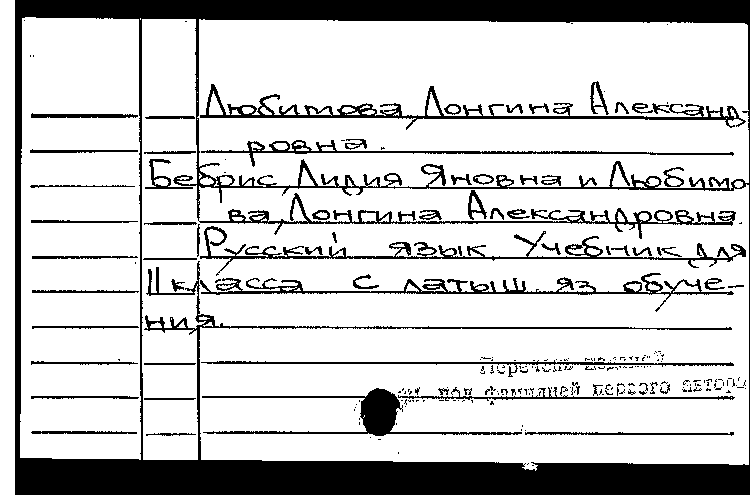 Любимова, Лонгина Александ-
ровна.
Бебрис, Лидия Яновна и Любимо-
ва, Лонгина Александровна.
Русский язык. Учебник для
II класса с латыш. яз обуче-
ния.
Перечень изданий
см. под фамилией первого автора